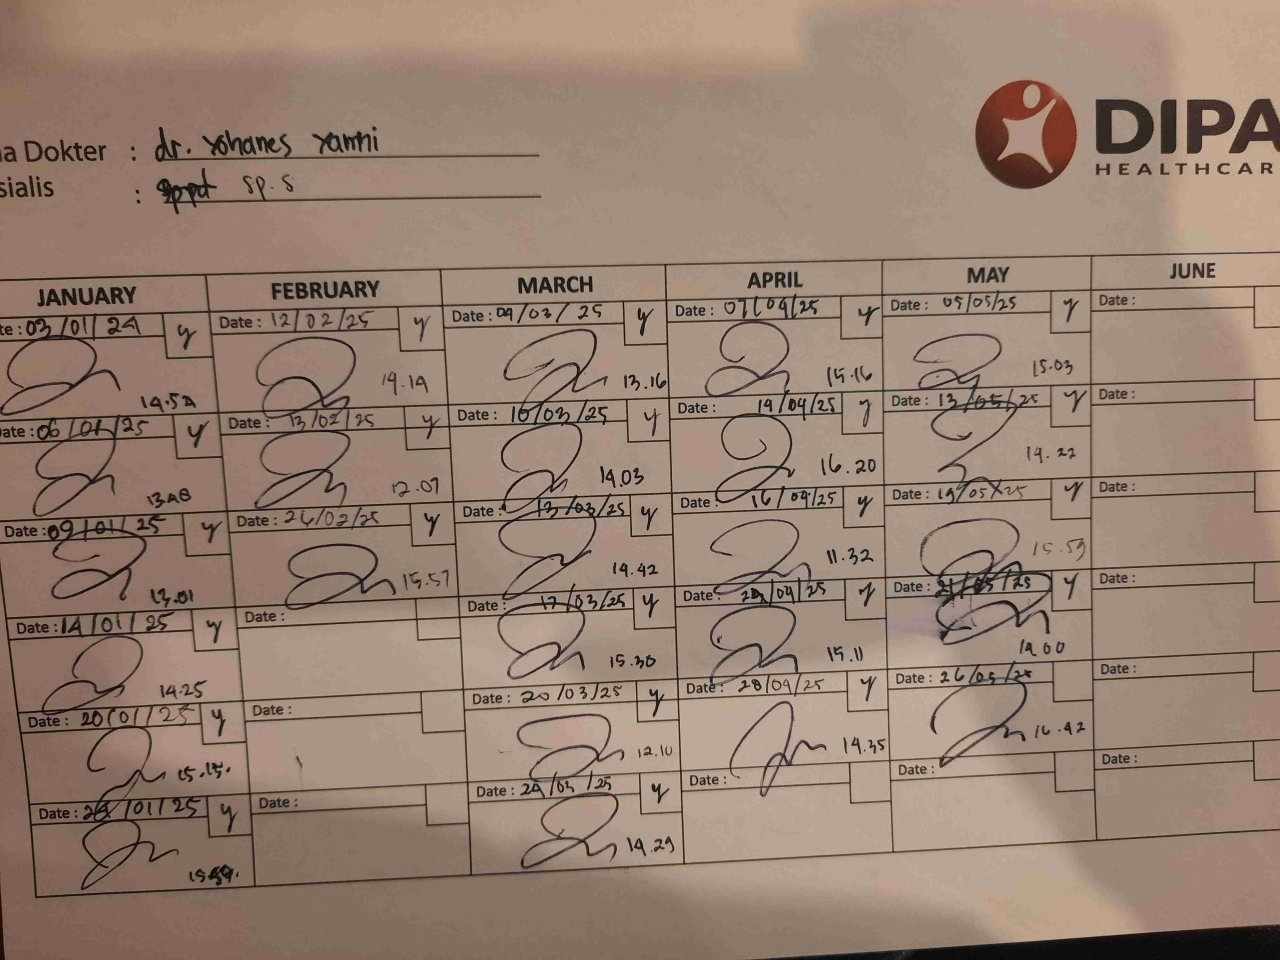 a Dokter : dr. Yohanes Yanni
sialis : sp.s
DIPA
HEALTHCAR
JANUARY FEBRUARY MARCH APRIL MAY JUNE
te : 03/01/24 y Date : 12/02/25 y Date : 04/03/25 y Date : 07/04/25 y Date : 05/05/25 y Date :
14.52 14.14 13.16 15.16 15.03
ate : 06/01/25 y Date : 13/02/25 y Date : 10/03/25 y Date : 14/04/25 y Date : 13/05/25 y Date :
13.48 12.07 14.03 16.20 14.22
Date : 09/01/25 y Date : 26/02/25 y Date : 13/03/25 y Date : 16/04/25 y Date : 19/05/25 y Date :
13.01 15.57 14.42 11.32 15.53
Date : 14/01/25 y Date : Date : 17/03/25 y Date : /04/25 y Date : 21/05/25 y Date :
14.25 15.30 15.11 14.00
Date : 20/01/25 y Date : Date : 20/03/25 y Date : 28/04/25 y Date : 26/05/25 Date :
15.15. 12.10 14.35 16.42
Date : /01/25 y Date : Date : 24/03/25 y Date : Date : Date :
14.29